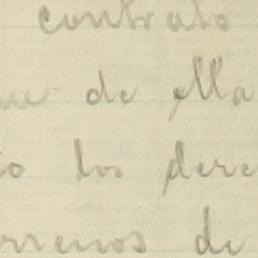 contrato
ue de ella
o los dere
rrenos de